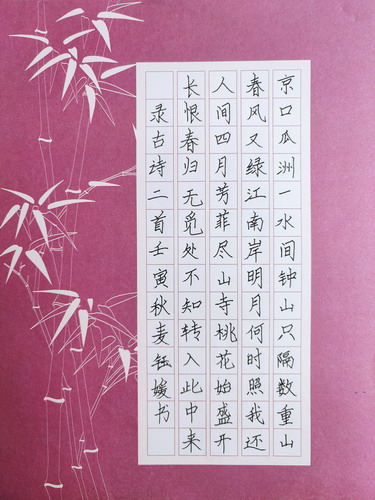 京口瓜洲一水间钟山只隔数重山
春风又绿江南岸明月何时照我还
人间四月芳菲尽山寺桃花始盛开
长恨春归无觅处不知转入此中来
录古诗二首壬寅秋麦钰媛书